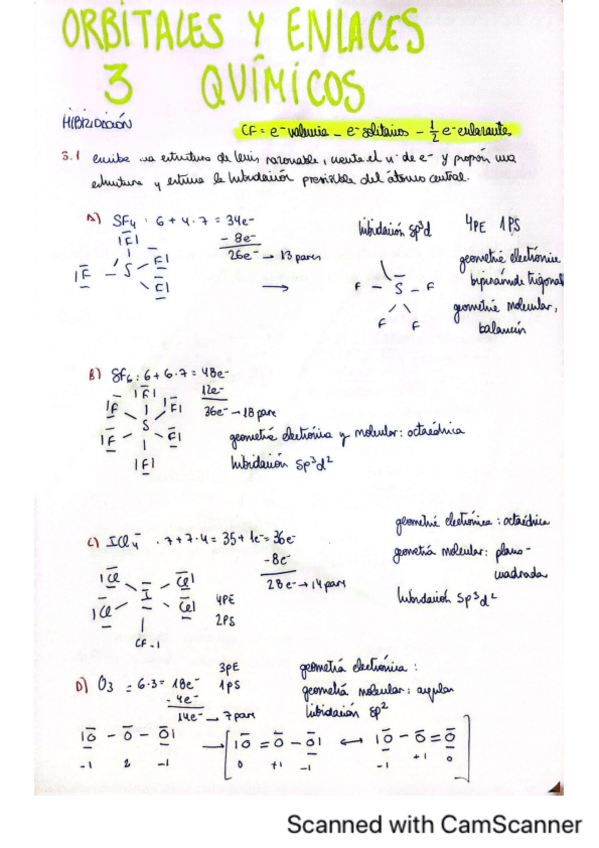 ORBITALES Y ENLACES
3 QUÍMICOS
HIBRIDACIÓN
CF = e- valencia - e- solitarios - 1/2 e- enlazante
3.1 escriba una estructura de lewis razonable, cuente el nº de e- y propón una
estructura y estima la hibridación previsible del átomo central.
A) SF4 : 6 + 4·7 = 34e-
- 8e-
26e- → 13 pares
hibridación sp³d
4PE 1PS
geometría electrónica
bipirámide trigonal
geometría molecular,
balancín
|F|
|F - S - F|
F|
→
F - S - F
F F
B) SF6 : 6 + 6·7 = 48e-
12e-
36e- → 18 pares
|F|
|F F|
S
|F F|
|F|
geometría electrónica y molecular: octaédrica
hibridación sp³d²
C) ICl4- · 7 + 7·4 = 35 + 1e- = 36e-
-8e-
28e- → 14 pares
|Cl Cl|
I
|Cl Cl|
CF -1
4PE
2PS
geometría electrónica : octaédrica
geometría molecular: plano-
cuadrada
hibridación sp³d²
D) O3 = 6·3 = 18e-
- 4e-
14e- → 7 pares
3PE
1PS
geometría electrónica :
geometría molecular: angular
hibridación sp²
|O - O - O| → [|O = O - O| ↔ |O - O = O]
-1 2 -1 0 +1 -1 -1 +1 0
Scanned with CamScanner